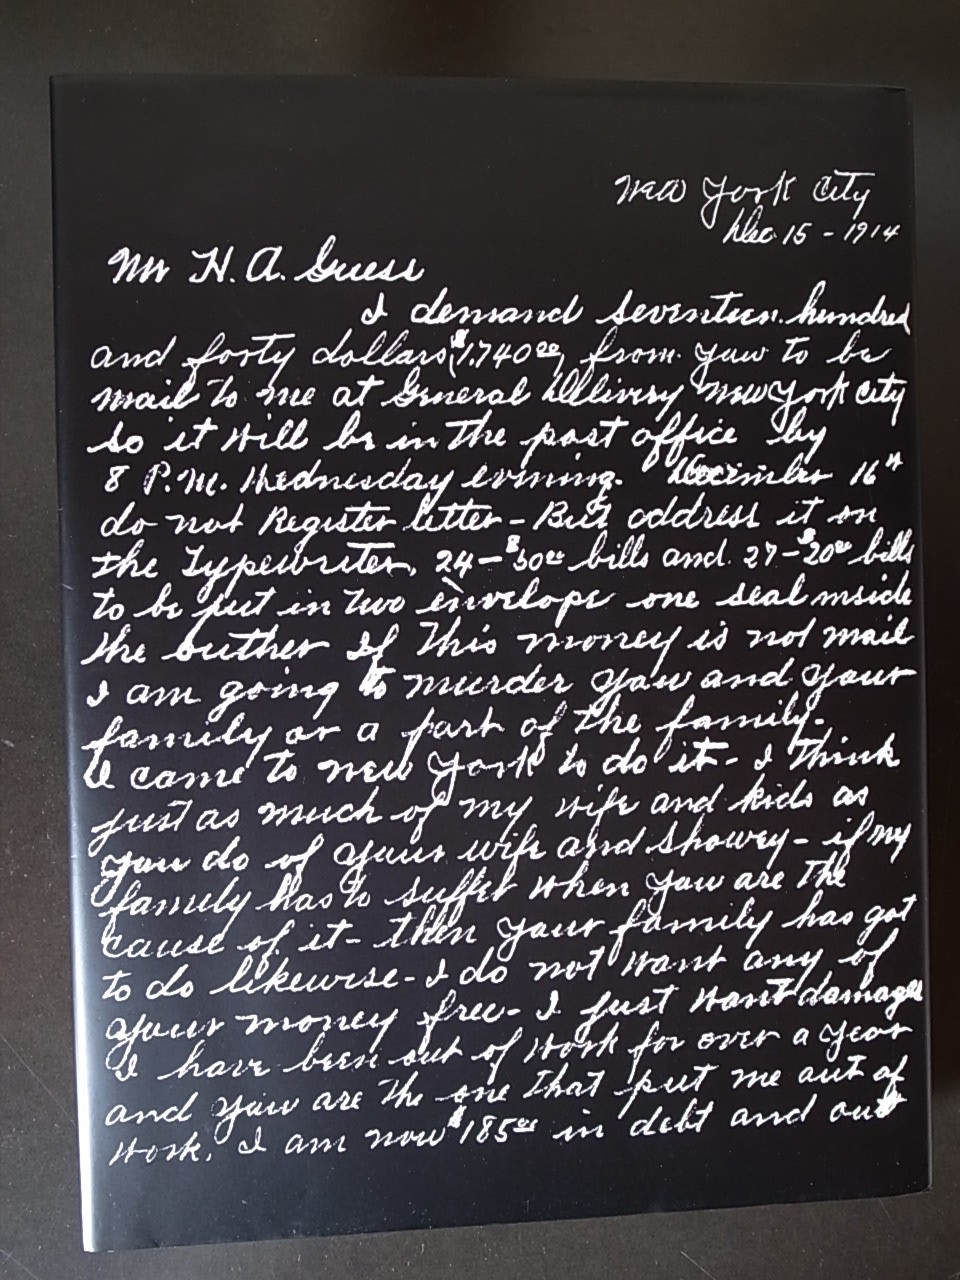 New York City
Dec 15 - 1914
Mr H. A. Guess
I demand seventeen hundred
and forty dollars ($1,740.00) from yaw to be
mail to me at General Dilivery New York City
So it will be in the post office by
8 P.M. Wednesday evining. December 16th
do not Register letter - But address it on
the Typewriter, 24 - $50.00 bills and 27 - $20.00 bills
to be put in two envelope one seal inside
the outher If this money is not mail
I am going to murder yaw and your
family or a part of the family.
I came to New York to do it - I think
just as much of my wife and kids as
yaw do of your wife and Showey - if my
family has to suffer when yaw are the
cause of it - then your family has got
to do likewise - I do not want any of
your money free - I just want damages
I have been out of work for over a year
and yaw are the one that put me out of
work. I am now $185.00 in debt and out